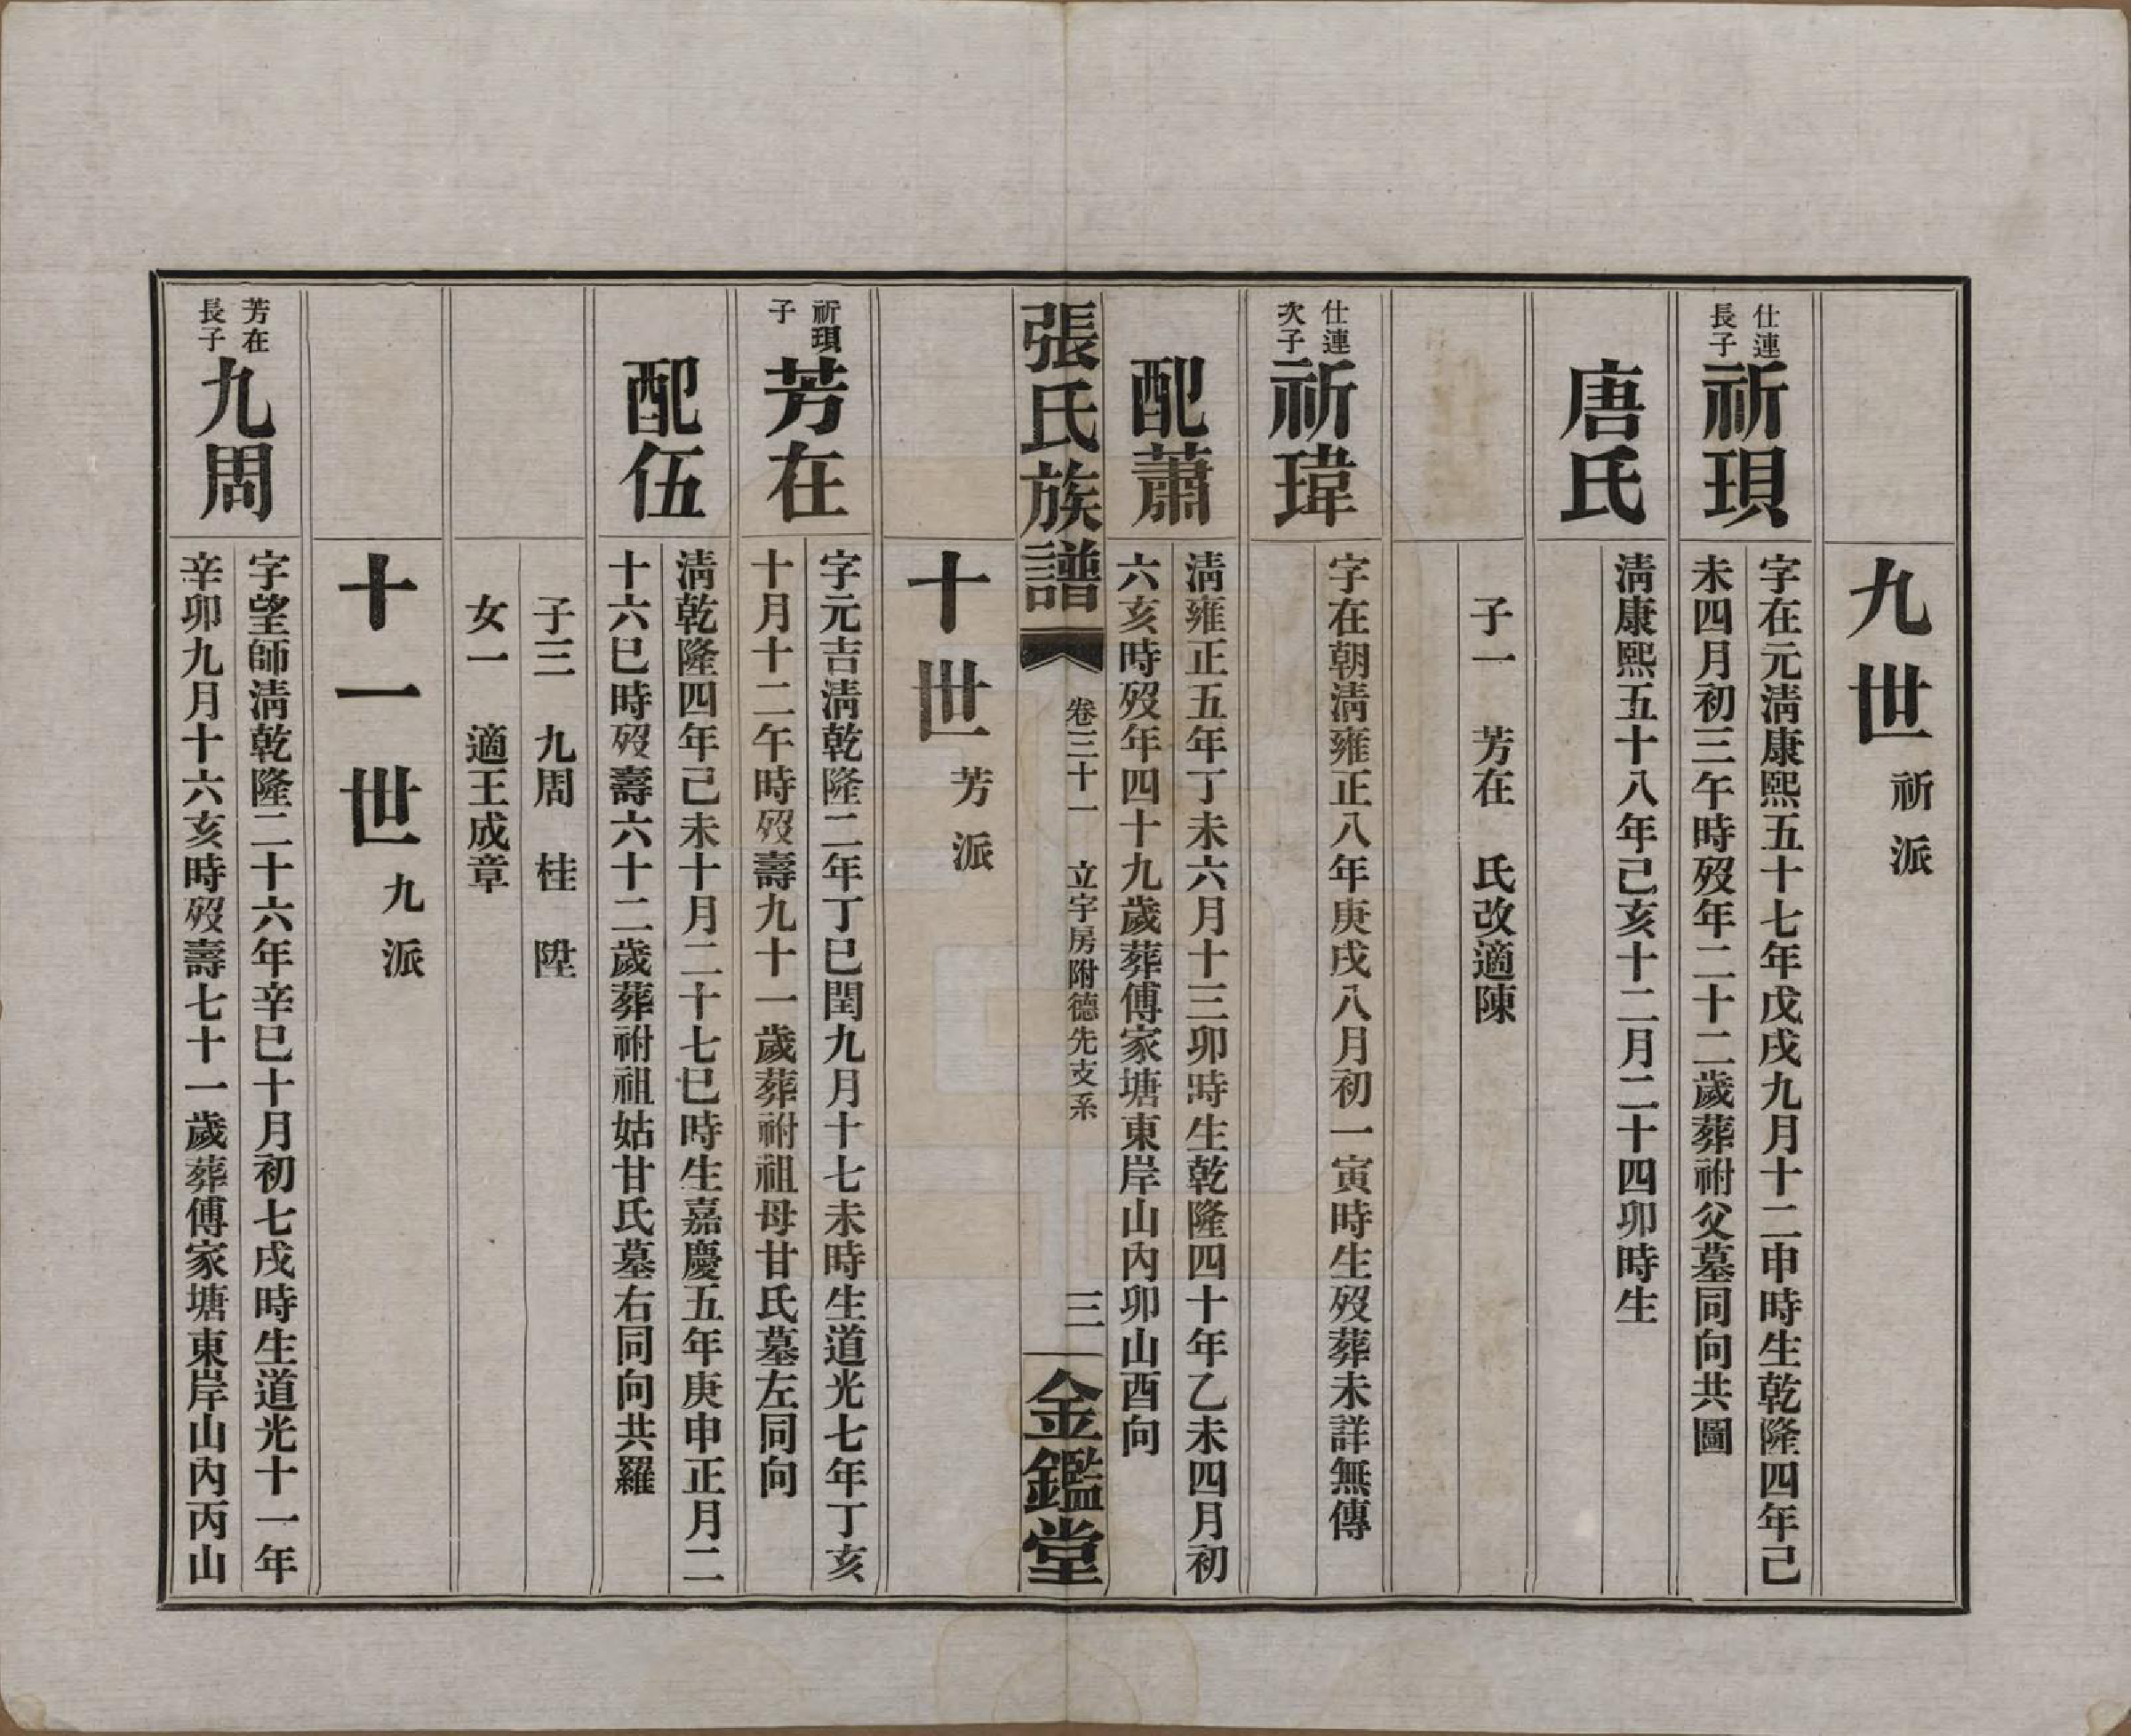 九世 祈派
仕連
長子
祈珼
字在元淸康熙五十七年戊戌九月十二申時生乾隆四年己
未四月初三午時歿年二十二歲葬祔父墓同向共圖
唐氏
淸康熙五十八年己亥十二月二十四卯時生
子一 芳在 氏改適陳
仕連
次子
祈瑋
字在朝淸雍正八年庚戌八月初一寅時生歿葬未詳無傳
配蕭
淸雍正五年丁未六月十三卯時生乾隆四十年乙未四月初
六亥時歿年四十九歲葬傅家塘東岸山內卯山酉向
張氏族譜 卷三十一 立宇房附德先支系 三 金鑑堂
十世 芳派
祈珼
子
芳在
字元吉淸乾隆二年丁巳閏九月十七未時生道光七年丁亥
十月十二午時歿壽九十一歲葬祔祖母甘氏墓左同向
配伍
淸乾隆四年己未十月二十七巳時生嘉慶五年庚申正月二
十六巳時歿壽六十二歲葬祔祖姑甘氏墓右同向共羅
子三 九周 桂 陞
女一 適王成章
十一世 九派
芳在
長子
九周
字望師淸乾隆二十六年辛巳十月初七戌時生道光十一年
辛卯九月十六亥時歿壽七十一歲葬傅家塘東岸山內丙山